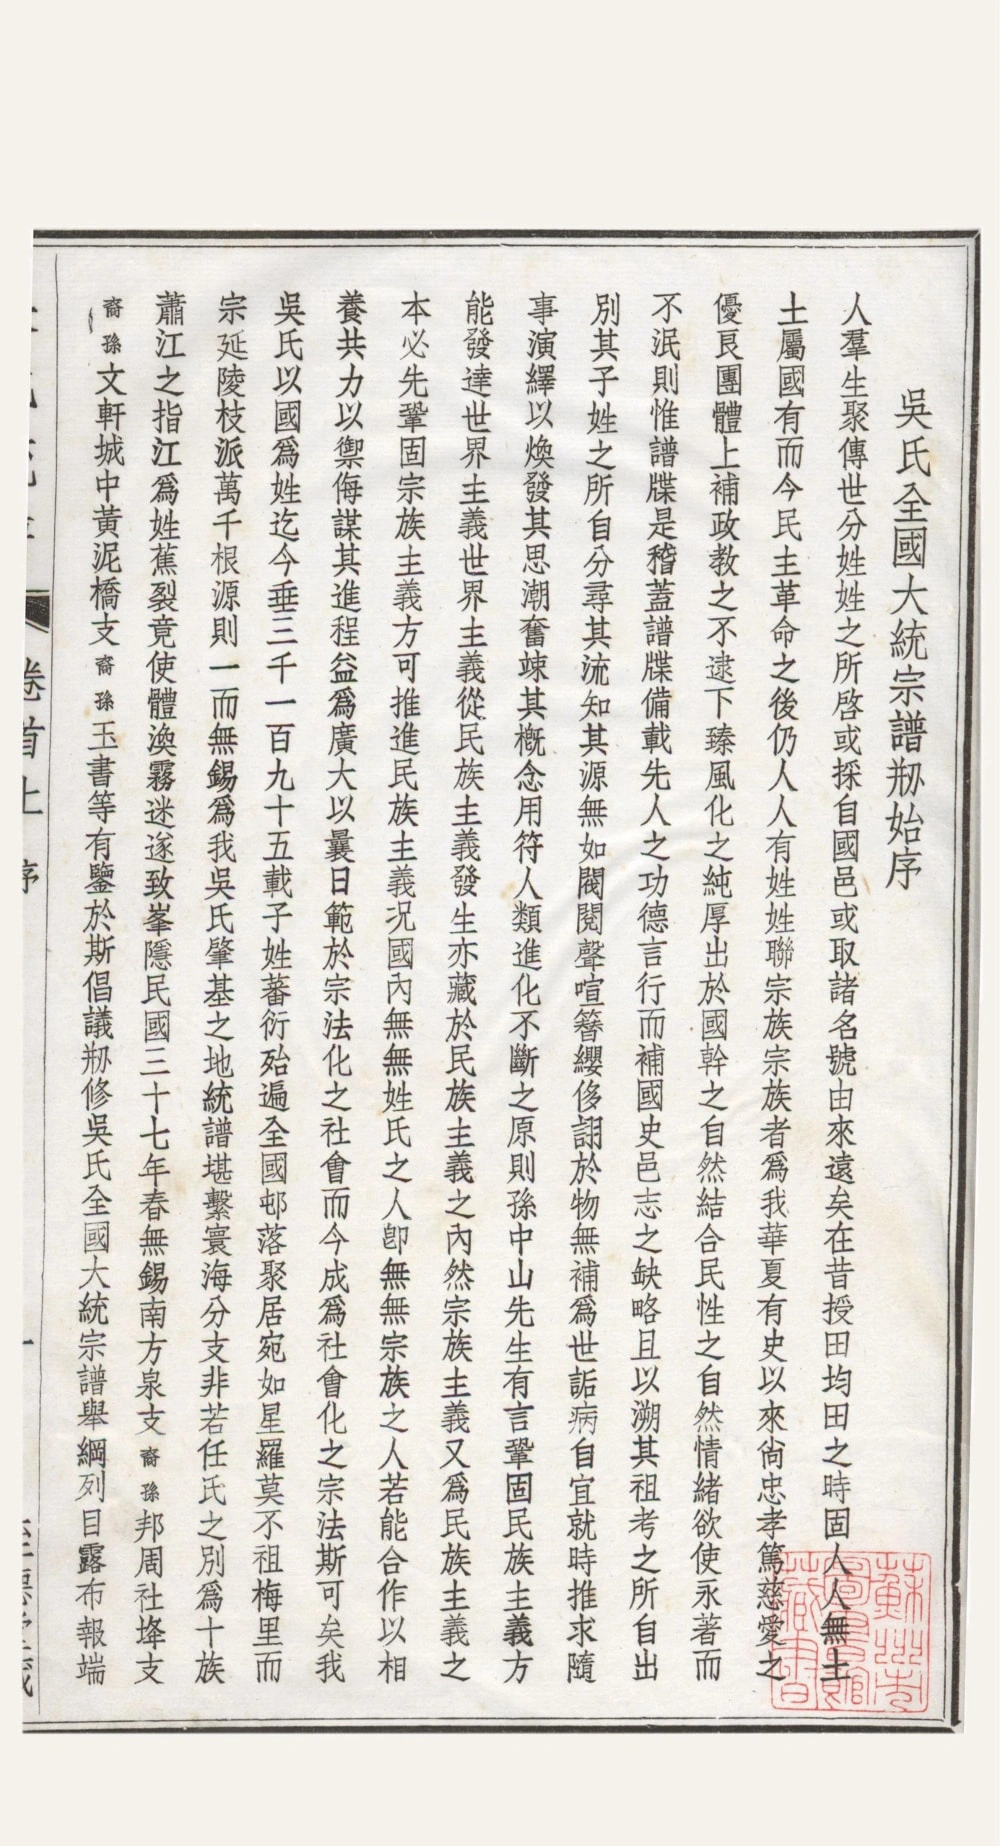 吳氏全國大統宗譜剏始序
人羣生聚傳世分姓姓之所啓或採自國邑或取諸名號由來遠矣在昔授田均田之時固人人無土
土屬國有而今民主革命之後仍人人有姓姓聯宗族宗族者爲我華夏有史以來尙忠孝篤慈愛之
優良團體上補政教之不逮下臻風化之純厚出於國幹之自然結合民性之自然情緒欲使永著而
不泯則惟譜牒是稽蓋譜牒備載先人之功德言行而補國史邑志之缺略且以溯其祖考之所自出
別其子姓之所自分尋其流知其源無如閥閱聲喧簪纓侈詡於物無補爲世詬病自宜就時推求隨
事演繹以煥發其思潮奮竦其概念用符人類進化不斷之原則孫中山先生有言鞏固民族主義方
能發達世界主義世界主義從民族主義發生亦藏於民族主義之內然宗族主義又爲民族主義之
本必先鞏固宗族主義方可推進民族主義况國內無無姓氏之人卽無無宗族之人若能合作以相
養共力以禦侮謀其進程益爲廣大以曩日範於宗法化之社會而今成爲社會化之宗法斯可矣我
吳氏以國爲姓迄今垂三千一百九十五載子姓蕃衍殆遍全國邨落聚居宛如星羅莫不祖梅里而
宗延陵枝派萬千根源則一而無錫爲我吳氏肇基之地統譜堪繫寰海分支非若任氏之別爲十族
蕭江之指江爲姓蕉裂竟使體渙霧迷遂致峯隱民國三十七年春無錫南方泉支裔孫邦周社塳支
裔孫文軒城中黃泥橋支裔孫玉書等有鑒於斯倡議剏修吳氏全國大統宗譜舉綱列目露布報端
卷首上 序
蘇州市圖書館藏書